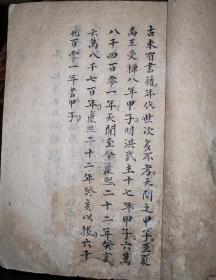 古未有書籍年代世次多不考天開之甲子至夏
禹王受禪八年甲子明洪武主十七年甲子六萬
八千四百零一年天開至癸康熙二十二年癸亥
六萬八千七百年康熙二十二年癸亥以後六千
九百零一年當甲子